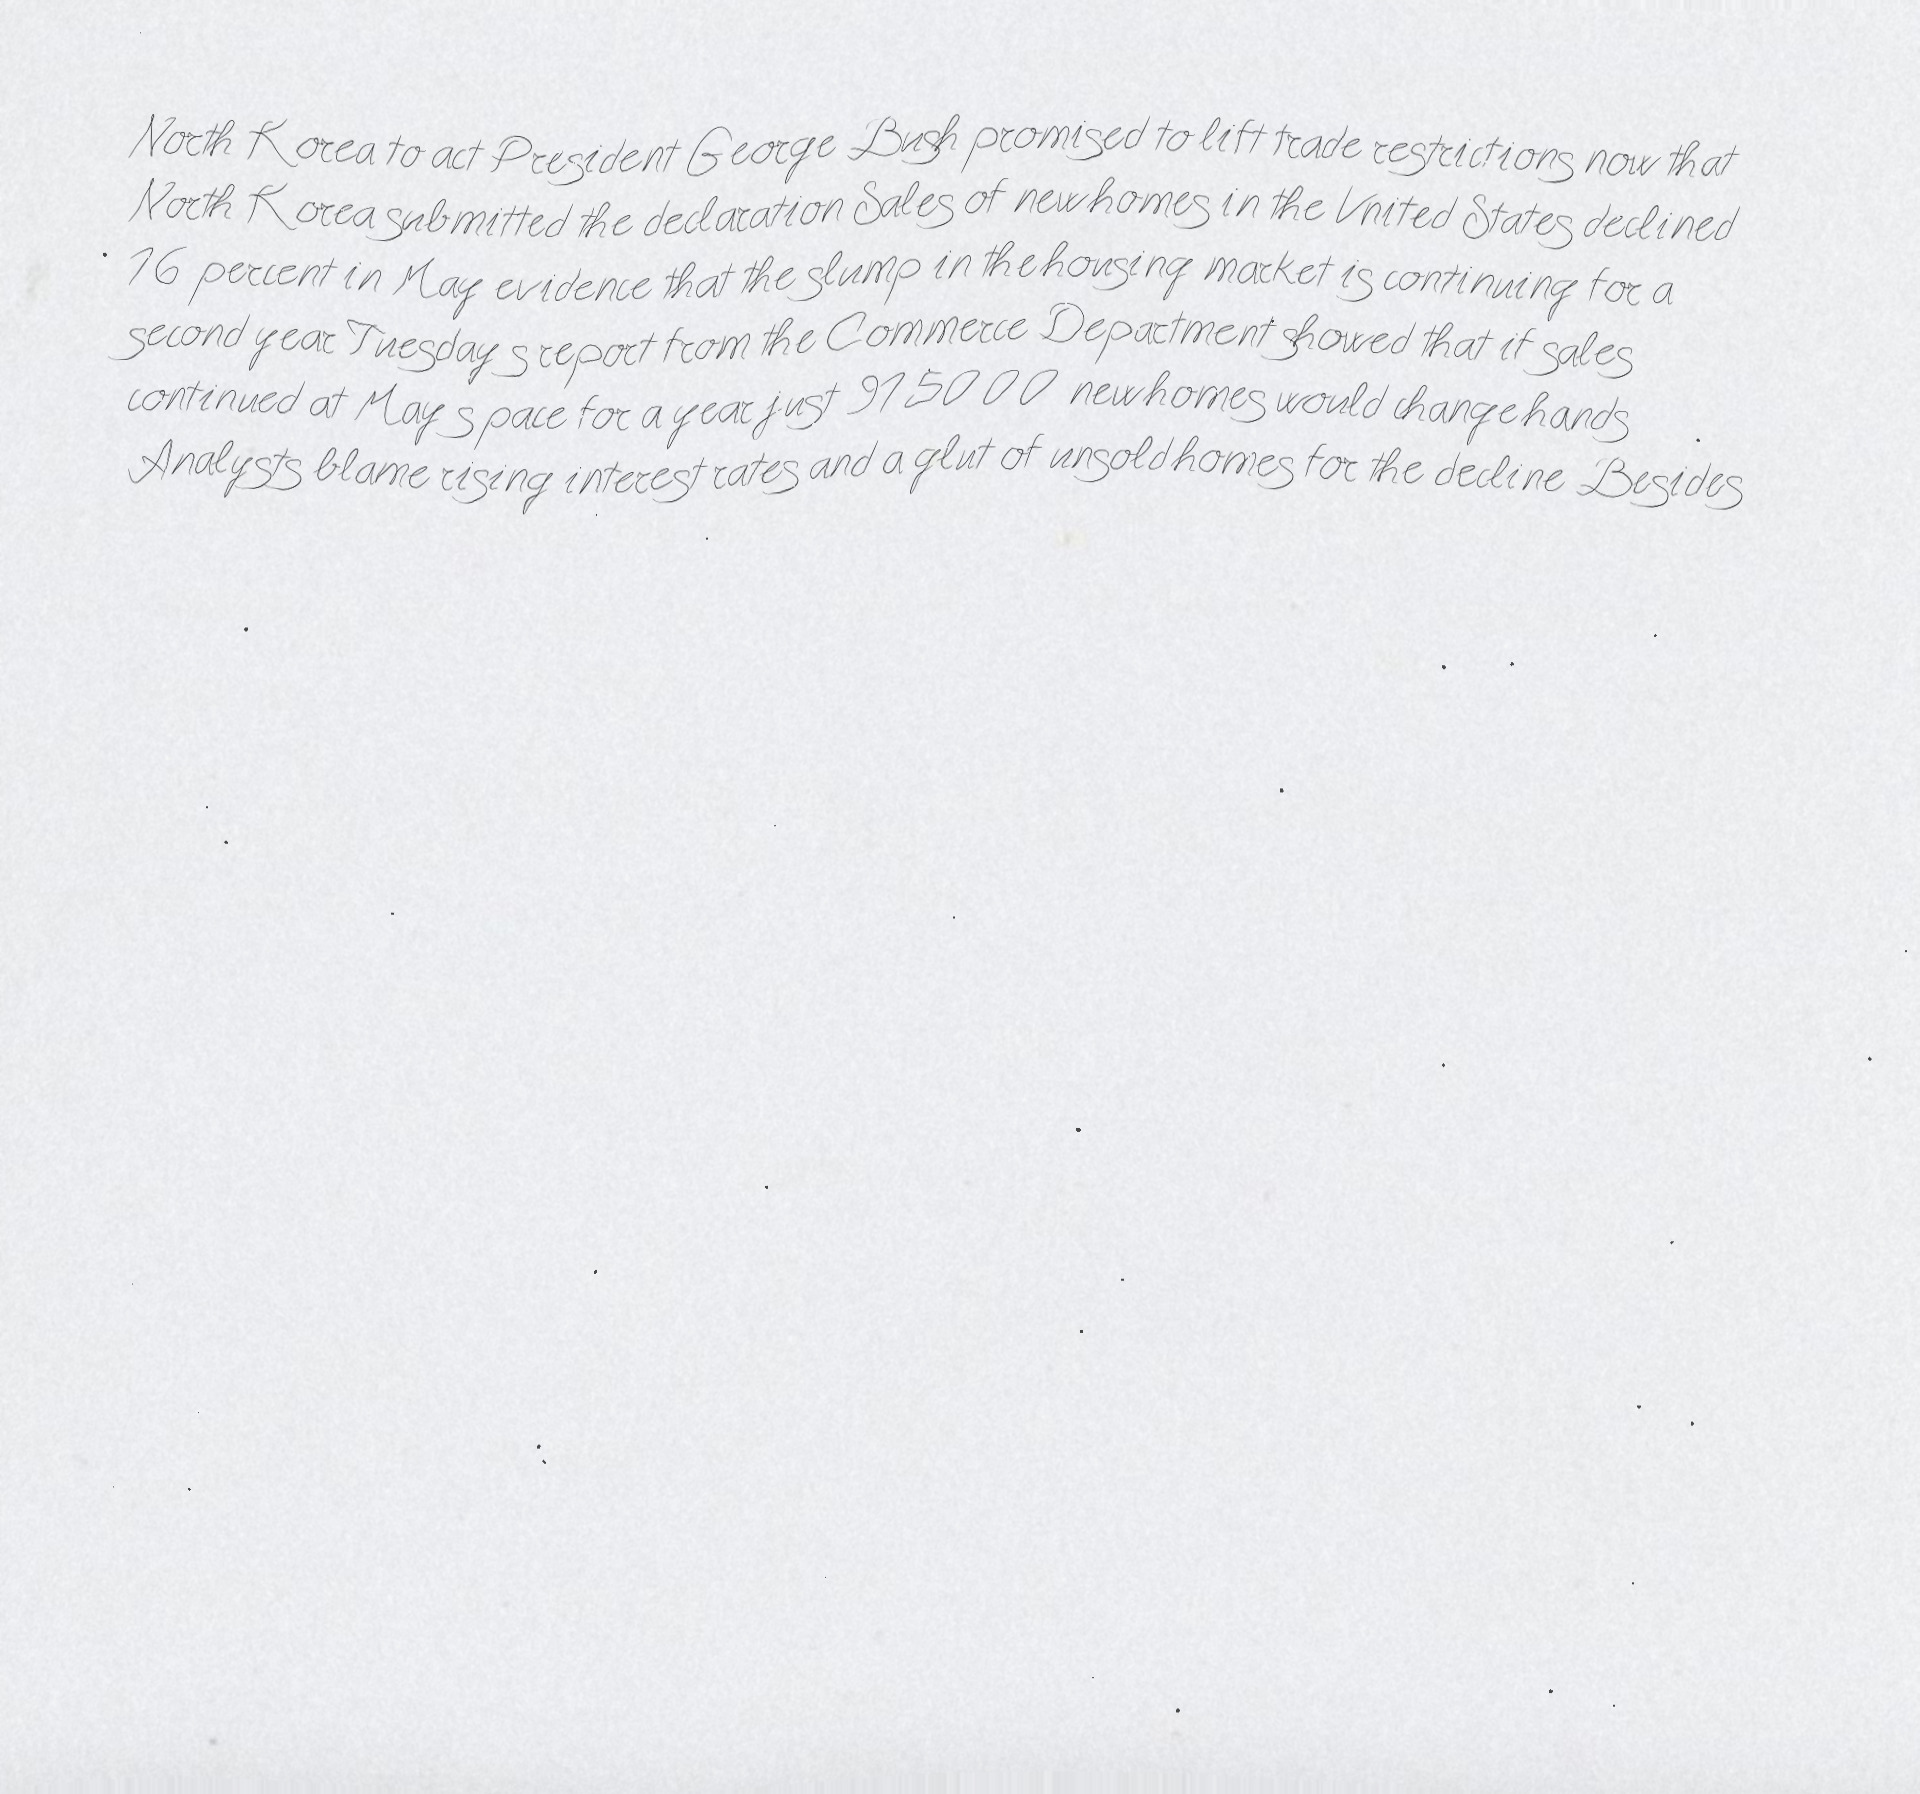 North Korea to act President George Bush promised to lift trade restrictions now that
North Korea submitted the declaration Sales of new homes in the United States declined
16 percent in May evidence that the slump in the housing market is continuing for a
second year Tuesday s report from the Commerce Department showed that if sales
continued at May s pace for a year just 915000 new homes would change hands
Analysts blame rising interest rates and a glut of unsold homes for the decline Besides